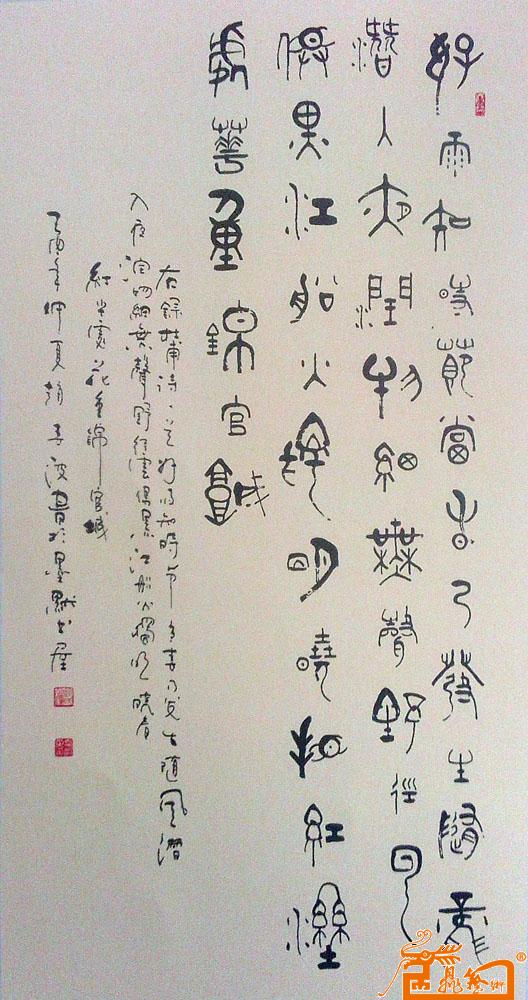 好雨知時節當春乃發生隨風
潛入夜潤物細無聲野徑雲
俱黑江船火獨明曉看紅濕
處華重錦官城
右錄杜甫詩好雨知時節當春乃發生隨風潛
入夜潤物細無聲野徑雲俱黑江船火獨明曉看
紅濕處花重錦官城
乙酉年仲夏趙子波書於墨默書屋